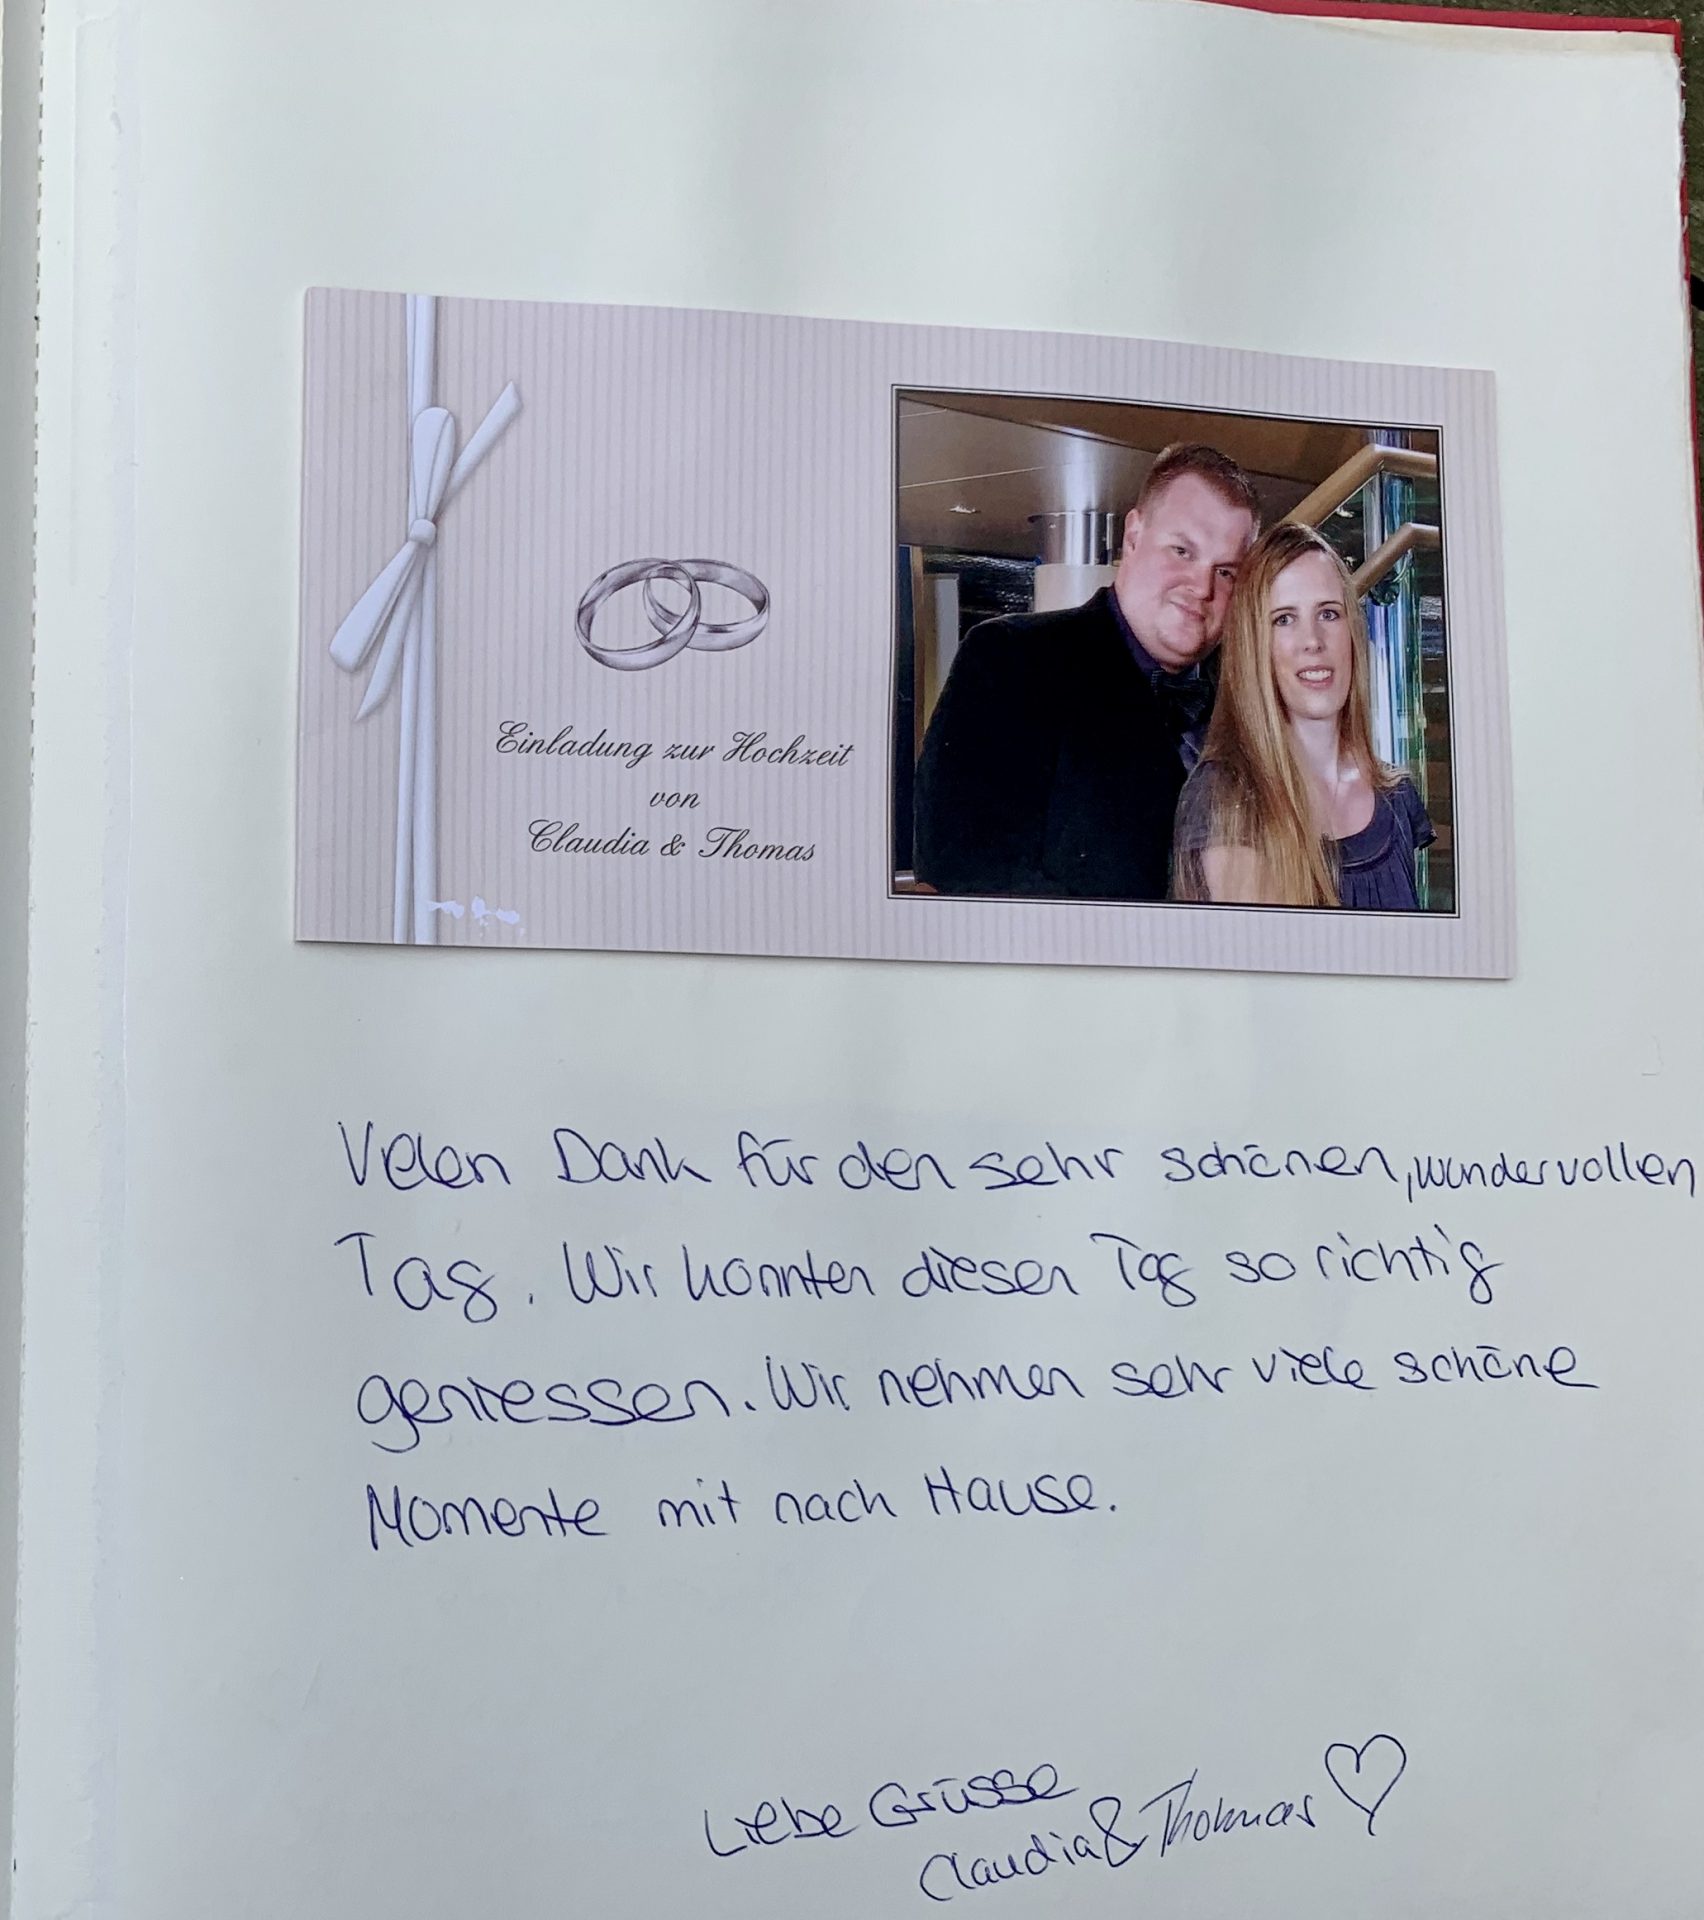 Einladung zur Hochzeit
von
Claudia & Thomas
Vielen Dank für den sehr schönen, wundervollen
Tag. Wir konnten diesen Tag so richtig
geniessen. Wir nehmen sehr viele schöne
Momente mit nach Hause.
Liebe Grüsse
Claudia & Thomas